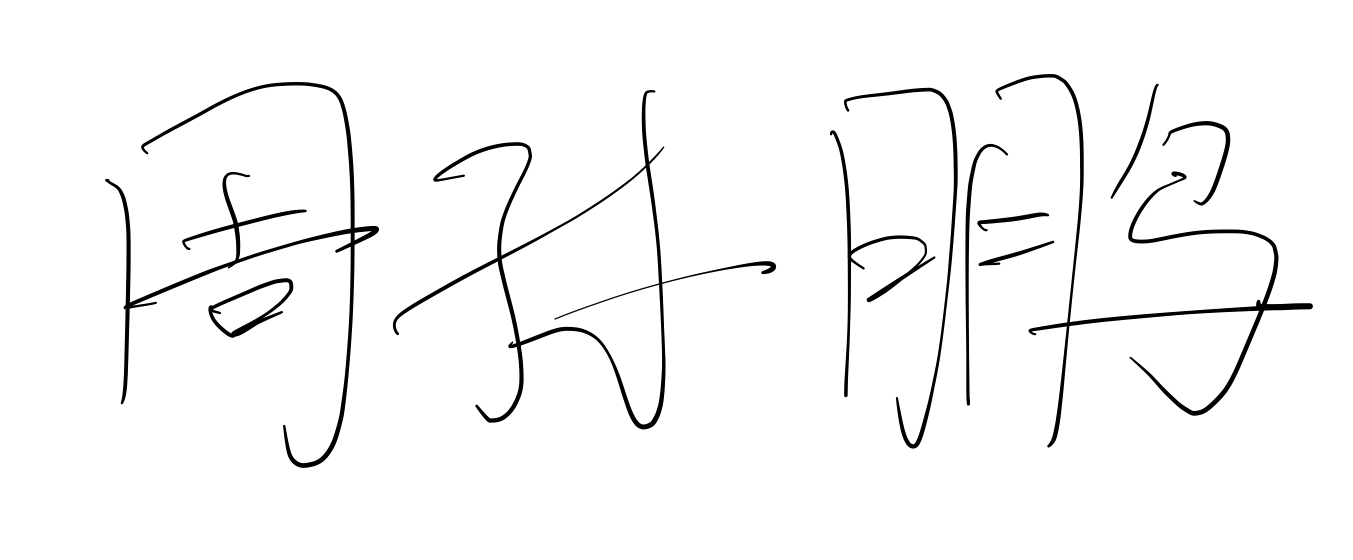 周孙鹏